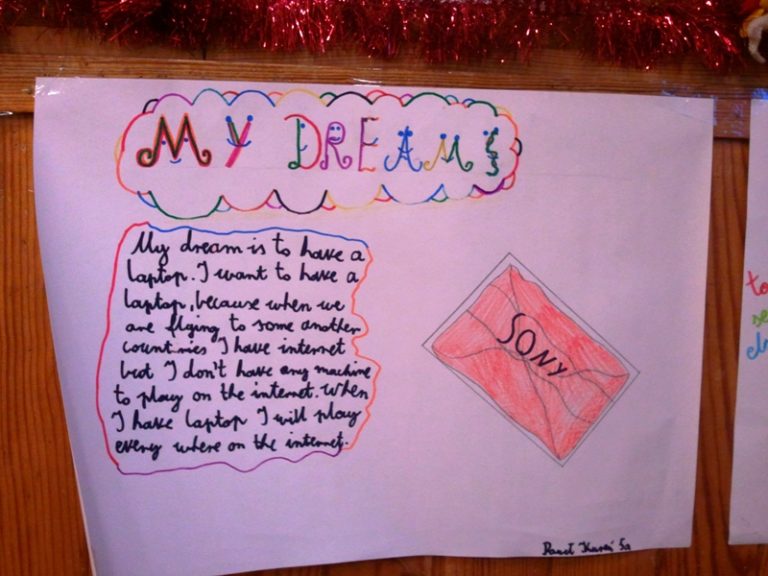 MY DREAMS
My dream is to have a
laptop. I want to have a
laptop, because when we
are flying to some another
countries I have internet
but I don't have any machine
to play on the internet. When
I have laptop I will play
every where on the internet.
SONY
5a